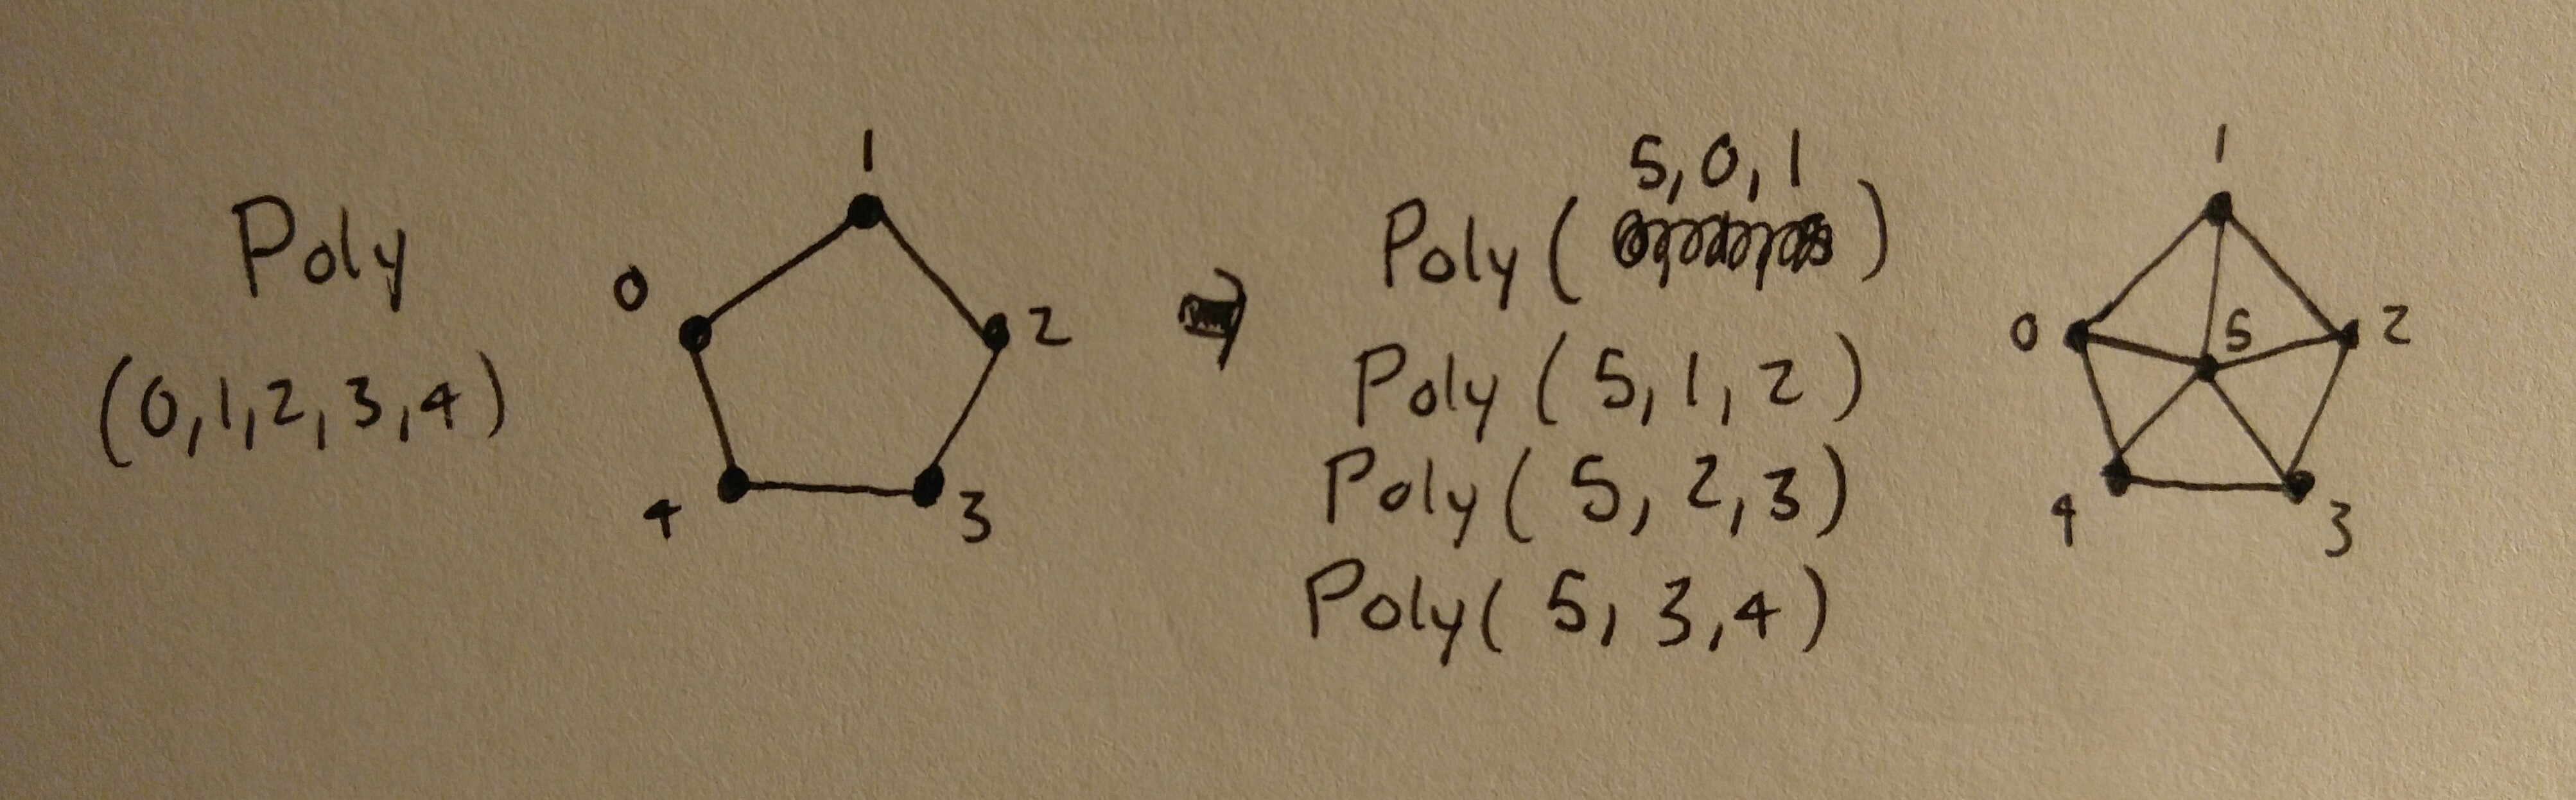 Poly
(0,1,2,3,4)
1
0
2
4
3
⇒
5,0,1
Poly ( )
Poly ( 5, 1, 2 )
Poly ( 5, 2, 3 )
Poly( 5, 3, 4 )
1
0
5
2
4
3